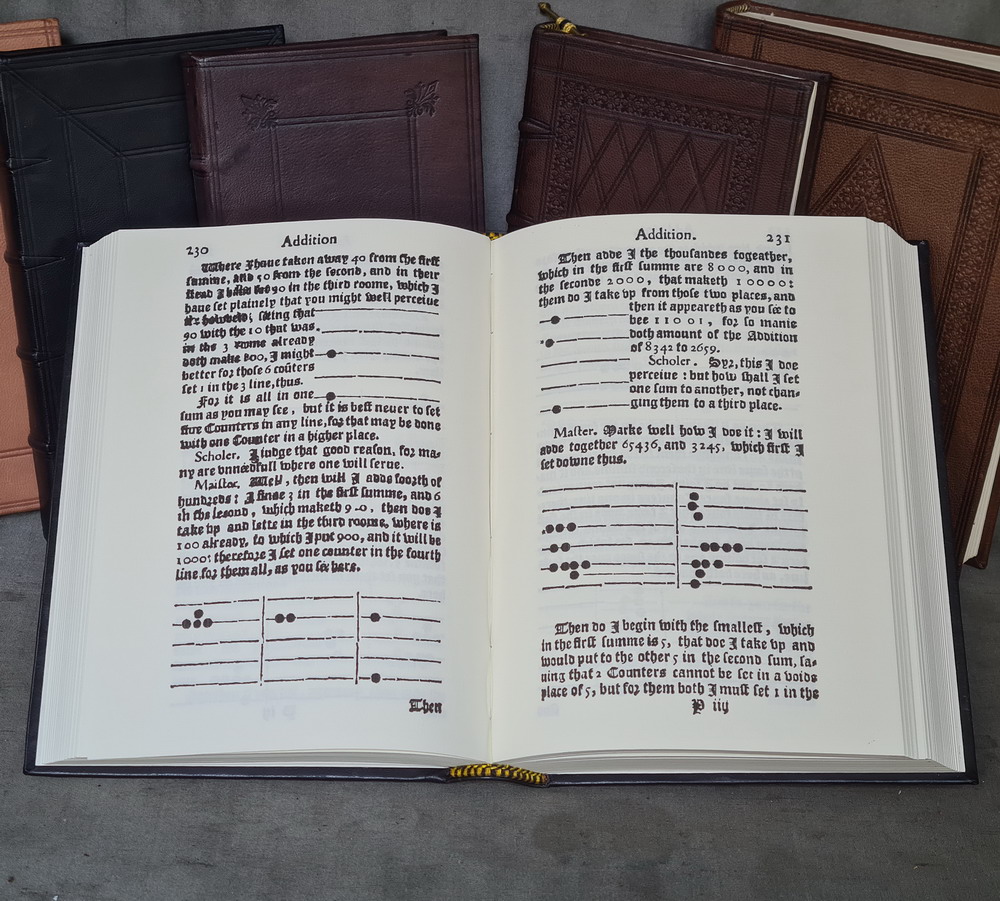 230
Addition
Where I haue taken away 40 from the first
summe, and 50 from the second, and in their
stead I haue set 90 in the third roome, which I
haue set plainely that you might well perceiue
seeing that
90 with the 10 that was
in the 3 roome already
doth make 100, I might
better for those 6 coūters
set 1 in the 3 line, thus.
For it is all in one
sum as you may see, but it is best neuer to set
fiue Counters in any line, for that may be done
with one Counter in a higher place.
Scholer. I iudge that good reason, for ma-
ny are vnneedfull where one will serue.
Maister. Well, then will I adde foorth of
hundreds: I finde 3 in the first summe, and 6
in the second, which maketh 9-0, then doe I
take vp and sette in the third roome, where is
100 already, to which I put 900, and it will be
1000: therefore I set one counter in the fourth
line for them all, as you see here.
Then
Addition.
231
Then adde I the thousandes togeather,
which in the first summe are 8000, and in
the seconde 2000, that maketh 10000:
them do I take vp from those two places, and
then it appeareth as you see to
bee 11001, for so manie
doth amount of the Addition
of 8342 to 2659.
Scholer. Syr, this I doe
perceiue: but how shall I set
one sum to another, not chan-
ging them to a third place.
Master. Marke well how I doe it: I will
adde together 65436, and 3245, which first I
set downe thus.
Then do I begin with the smallest, which
in the first summe is 5, that doe I take vp and
would put to the other 5 in the second sum, sa-
uing that 2 Counters cannot be set in a voide
place of 5, but for them both I must set 1 in the
P iiij